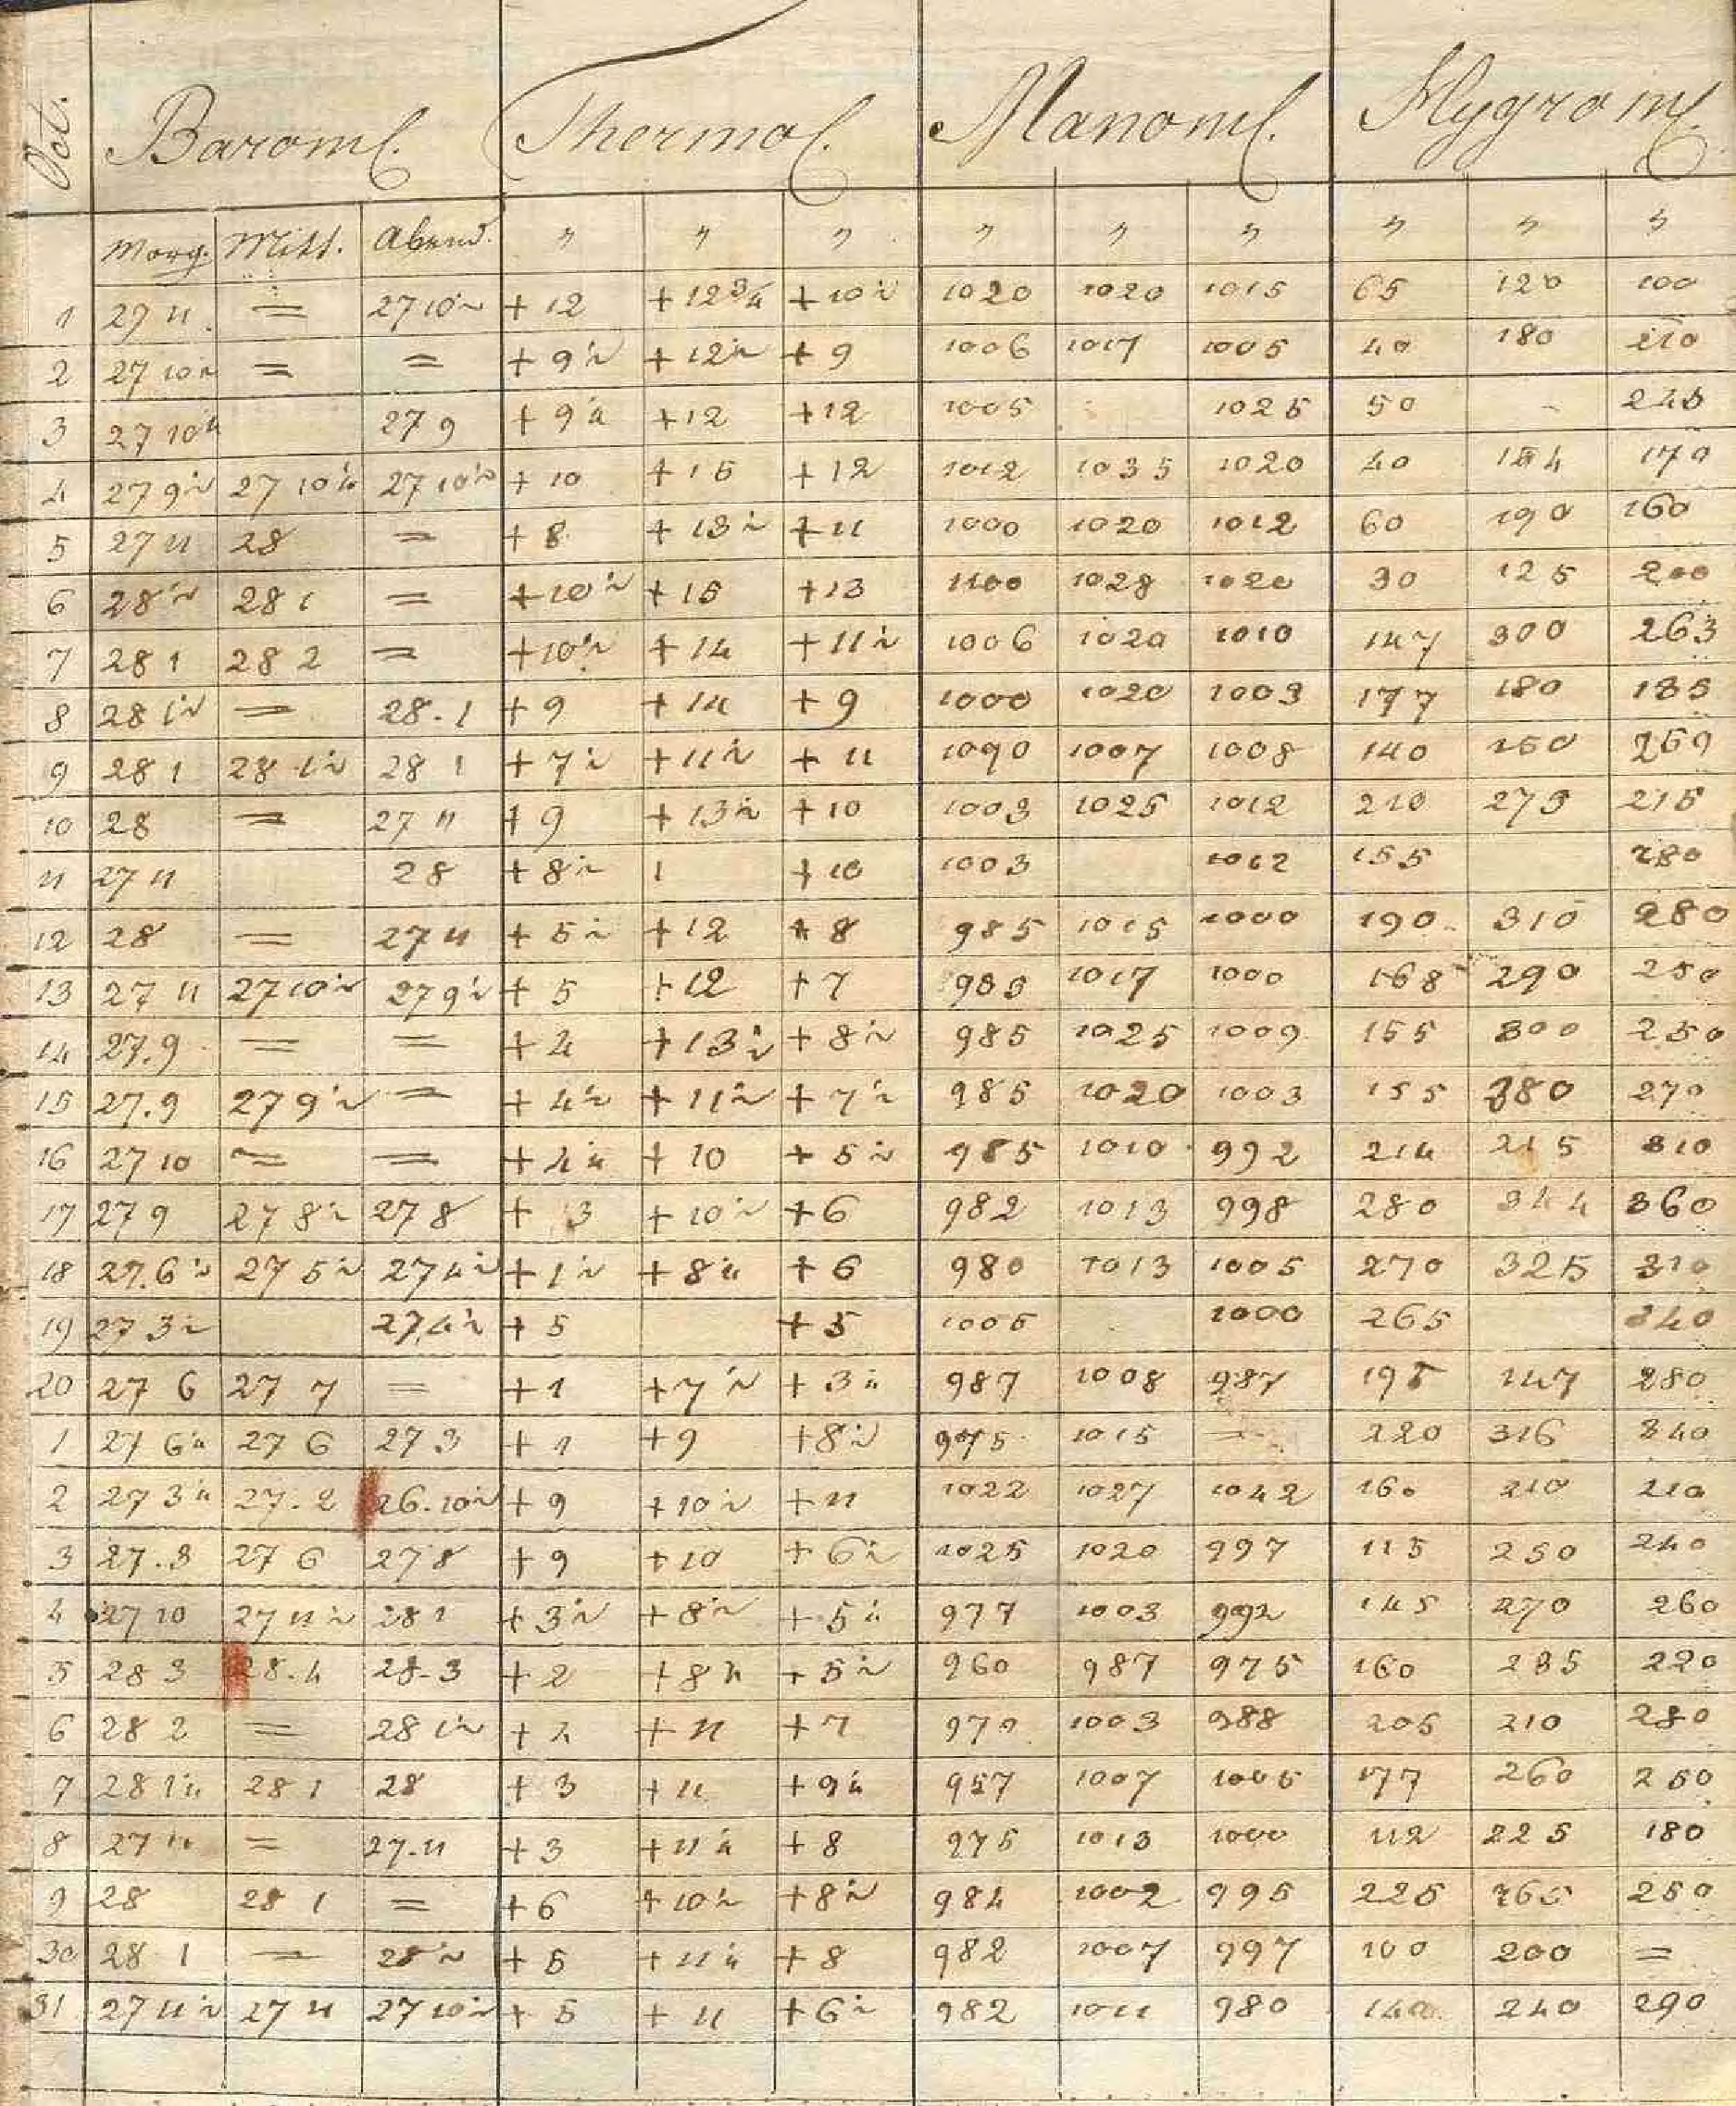 Oct. Baromt. Thermot. Manomt. Hygromt.
Morg. Mitt. Abend. " " " " " " " " "
1 27 11 = 27 10½ + 12 + 12¾ + 10½ 1020 1020 1015 65 120 100
2 27 10½ = = + 9½ + 12½ + 9 1006 1017 1005 40 180 210
3 27 10¼ 27 9 + 9¼ + 12 + 12 1005 1025 50
4 27 9½ 27 10¼ 27 10½ + 10 + 15 + 12 1012 1035 1020 40 170
5 27 11 28 = + 8 + 13½ + 11 1000 1020 1012 60 190 160
6 28½ 28 1 = + 10½ + 15 + 13 1100 1028 1020 30 125 200
7 28 1 28 2 = + 10½ + 14 + 11½ 1006 1020 1010 147 300 263
8 28 1½ = 28.1 + 9 + 14 + 9 1000 1020 1003 177 180 185
9 28 1 28 1½ 28 1 + 7½ + 11½ + 11 1090 1007 1008 140 150 250
10 28 = 27 11 + 9 + 13½ + 10 1003 1025 1012 210 275 215
11 27 11 28 + 8½ 1 + 10 1003 1012 155 280
12 28 = 27 11 + 5½ + 12 + 8 985 1015 1000 190 310 280
13 27 11 27 10½ 27 9½ + 5 + 12 + 7 985 1017 1000 168 290 250
14 27.9 = = + 4 + 13½ + 8½ 985 1025 1009 155 300 250
15 27.9 27 9½ = + 4½ + 11½ + 7½ 985 1020 1003 155 380 270
16 27 10 = = + 4¼ + 10 + 5½ 985 1010 992 214 215 310
17 27 9 27 8½ 27 8 + 3 + 10½ + 6 982 1013 998 280 344 360
18 27.6½ 27 5½ 27 4½ + 1½ + 8¼ + 6 980 1013 1005 270 325 310
19 27 3½ 27.4½ + 5 + 5 1005 1000 265 340
20 27 6 27 7 = + 1 + 7½ + 3¼ 987 1008 987 195 147 280
1 27 6¼ 27 6 27 3 + 1 + 9 + 8½ 975 1015 = 220 316 340
2 27 3¼ 27.2 26.10½ + 9 + 10½ + 11 1022 1027 1042 160 210 210
3 27.3 27 6 27 8 + 9 + 10 + 6½ 1025 1020 997 115 250 240
4 27 10 27 11½ 28 1 + 3½ + 8½ + 5¼ 977 1003 992 145 270 260
5 28 3 28.4 28.3 + 2 + 8¼ + 5½ 960 987 975 160 235 220
6 28 2 = 28 1½ + 4 + 11 + 7 970 1003 988 205 210 280
7 28 1¼ 28 1 28 + 3 + 11 + 9¼ 957 1007 1005 177 260 250
8 27 11 = 27.11 + 3 + 11¼ + 8 975 1013 1000 112 225 180
9 28 28 1 = + 6 + 10½ + 8½ 984 1002 995 225 265 250
30 28 1 = 28½ + 5 + 11¼ + 8 982 1007 997 100 200 =
31 27 11½ 27 11 27 10½ + 5 + 11 + 6½ 982 1011 980 140 240 290